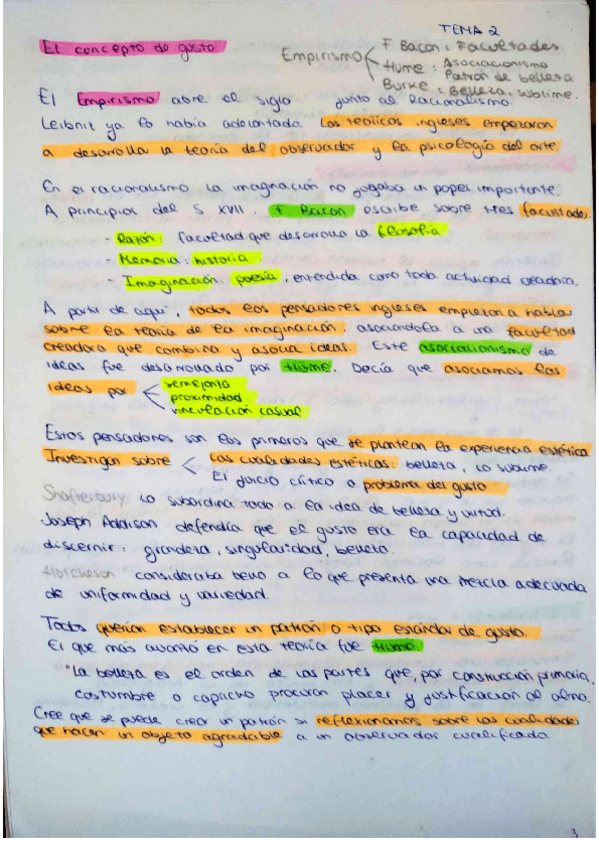 TEMA 2
El concepto de gusto
Empirismo
F Bacon: Facultades
Hume: Asociacionismo
Patrón de belleza
Burke: Belleza, sublime.
El Empirismo abre el siglo junto al Racionalismo.
Leibniz ya lo había adelantado. Los teóricos ingleses empezaron
a desarrollar la teoría del observador y la psicología del arte
En el racionalismo la imaginación no jugaba un papel importante.
A principios del S XVII. F Bacon escribe sobre tres facultades.
- Razón: facultad que desarrolla la filosofía
- Memoria: historia.
- Imaginación: poesía, entendida como toda actividad creadora.
A partir de aquí, todos los pensadores ingleses empiezan a hablar
sobre la teoría de la imaginación, asociándola a una facultad
creadora que combina y asocia ideas. Este asociacionismo de
ideas fue desarrollado por Hume. Decía que asociamos las
ideas por
semejanza
proximidad
vinculación casual
Estos pensadores son los primeros que se plantean la experiencia estética
Investigan sobre
Las cualidades estéticas: belleza, lo sublime.
El juicio crítico o problema del gusto
Shafterbury lo subordina todo a la idea de belleza y virtud.
Joseph Addison defendía que el gusto era la capacidad de
discernir: grandeza, singularidad, belleza.
Hutcheson consideraba bello a lo que presenta una mezcla adecuada
de uniformidad y variedad.
Todos querían establecer un patrón o tipo estándar de gusto.
El que más avanzó en esta teoría fue Hume.
"La belleza es el orden de las partes que, por construcción primaria,
costumbre o capricho procuran placer y justificación al alma.
Cree que se puede crear un patrón si reflexionamos sobre las cualidades
que hacen un objeto agradable a un observador cualificado
3